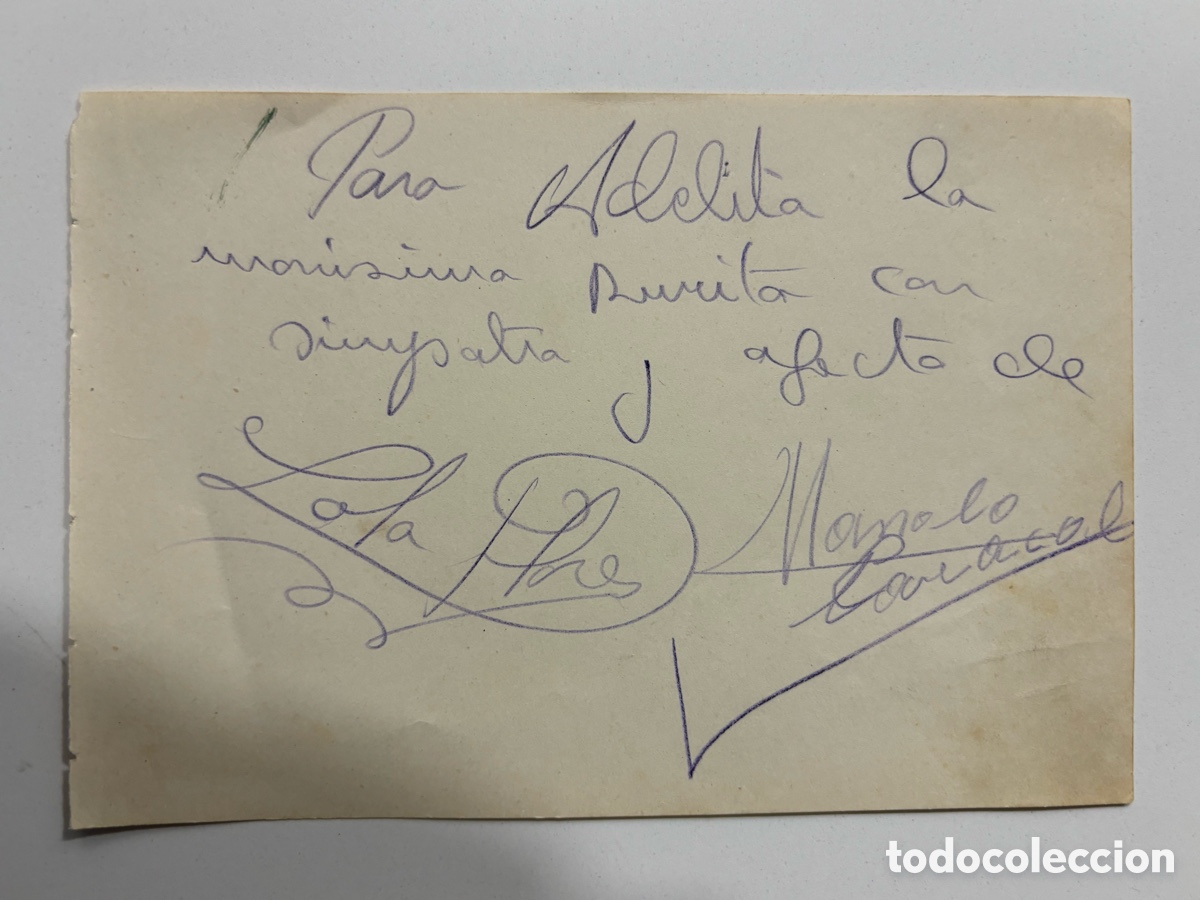 Para Adelita la
monisima Purita con
simpatia y afecto de
Lola Flores Manolo
Caracol
todocoleccion